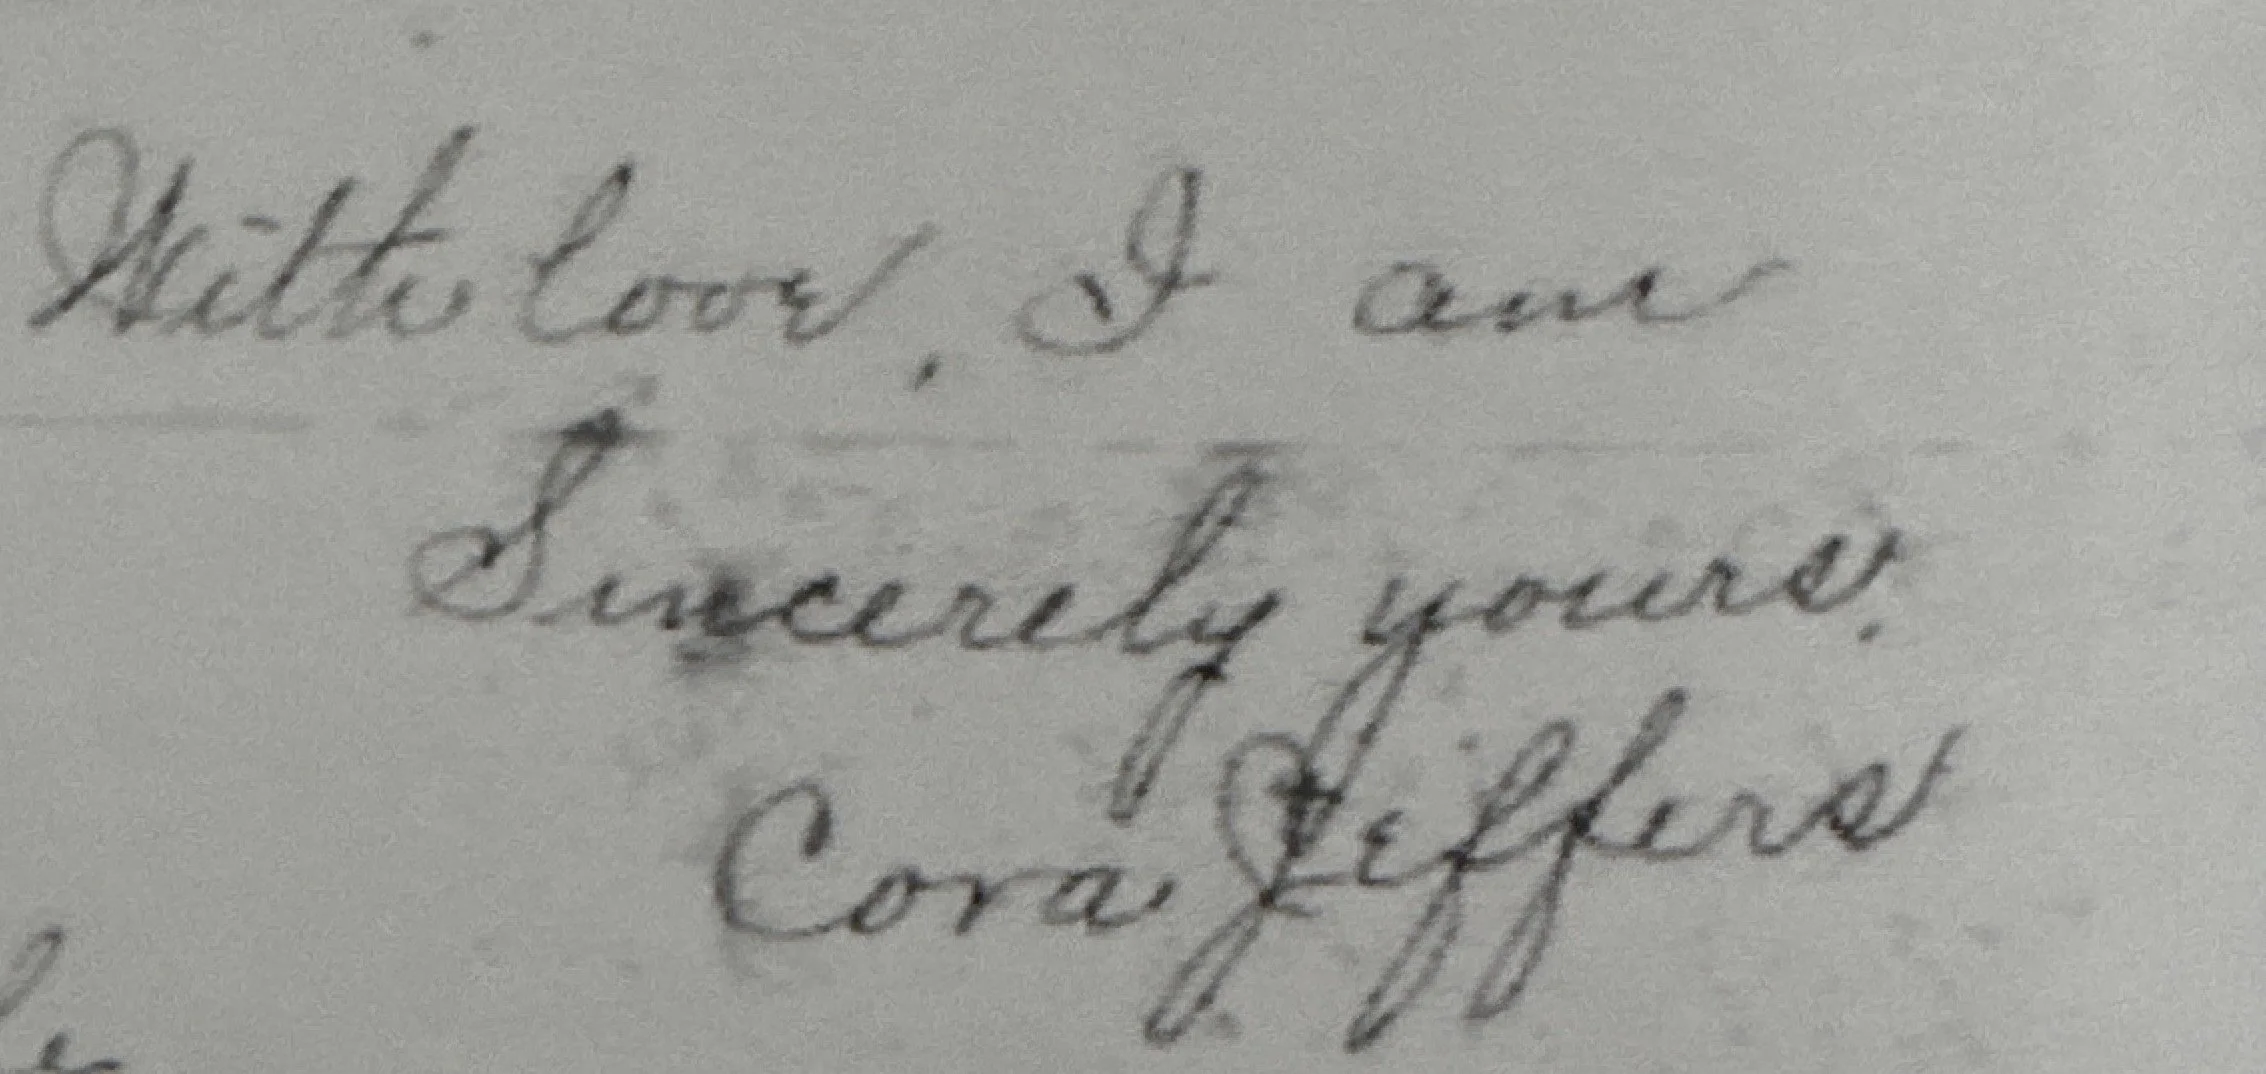 With love, I am
Sincerely yours.
Cora Jeffers